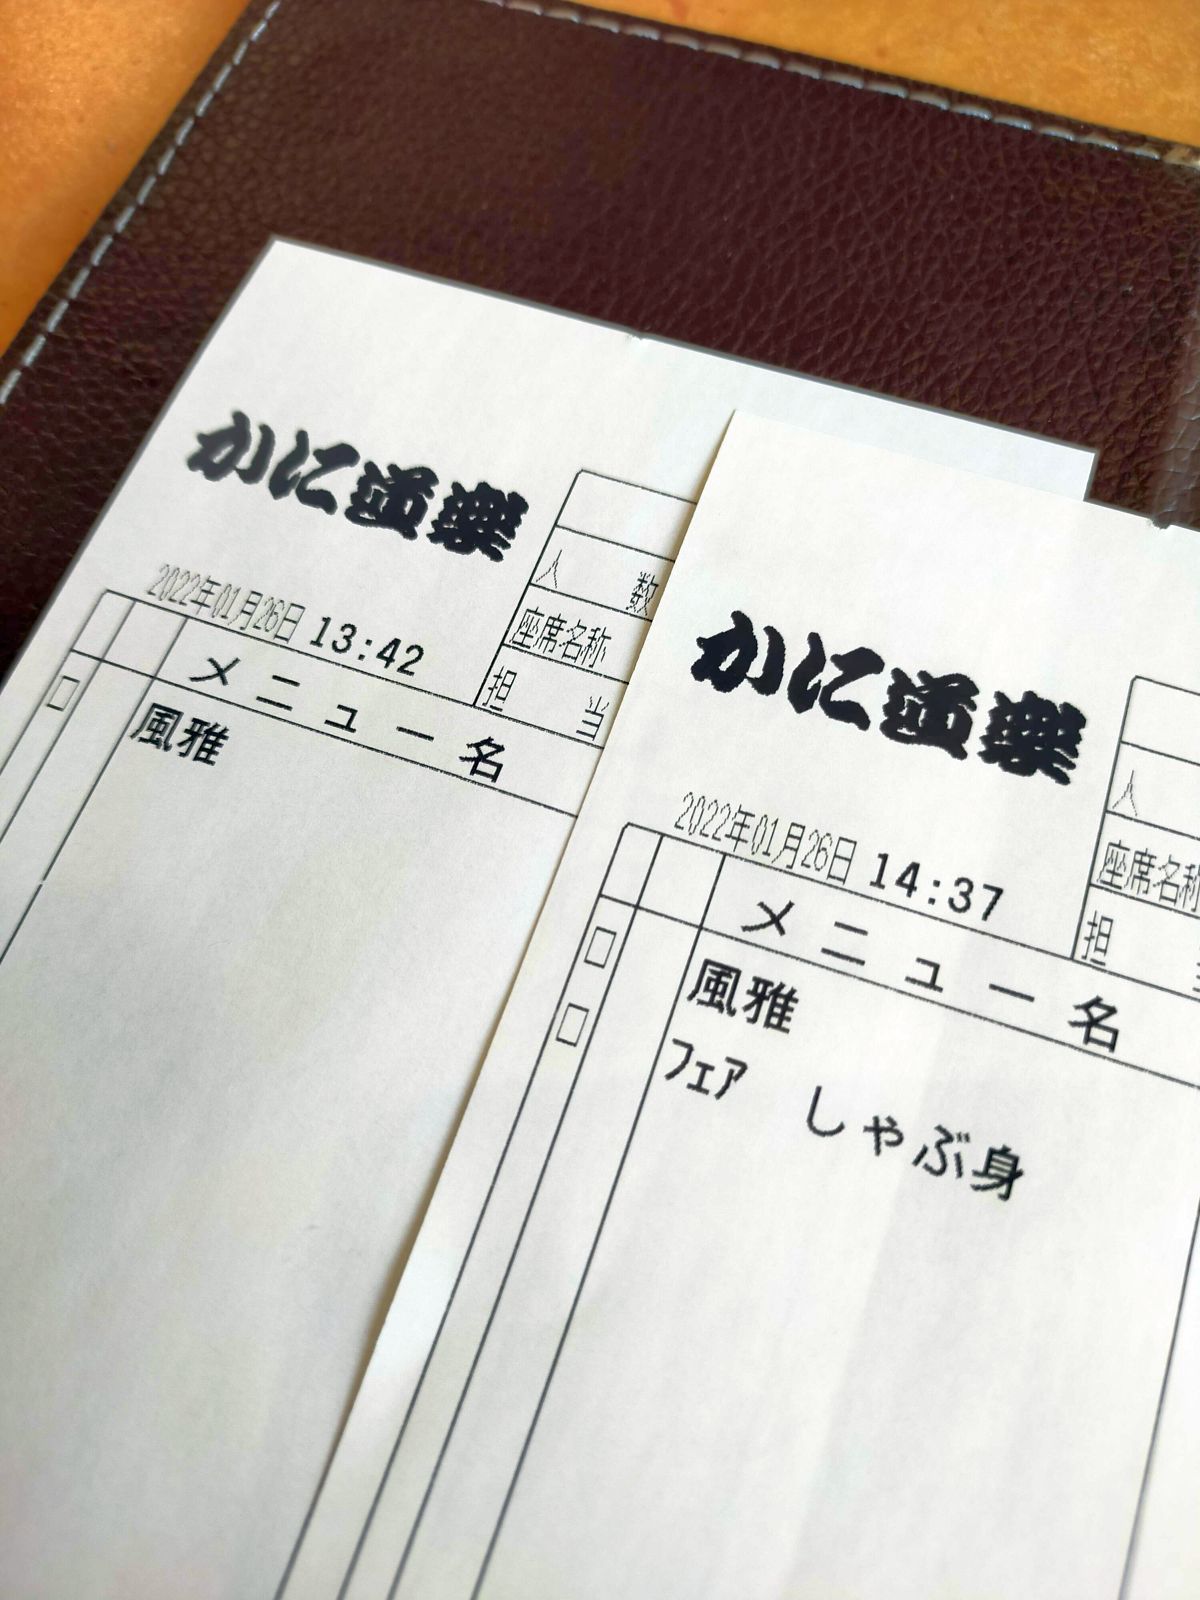 かに道楽
人 数
座席名称
担 当
2022年01月26日 13:42
メニュー名
風雅
かに道楽
人
座席名称
担
2022年01月26日 14:37
メニュー名
風雅
フェア しゃぶ身